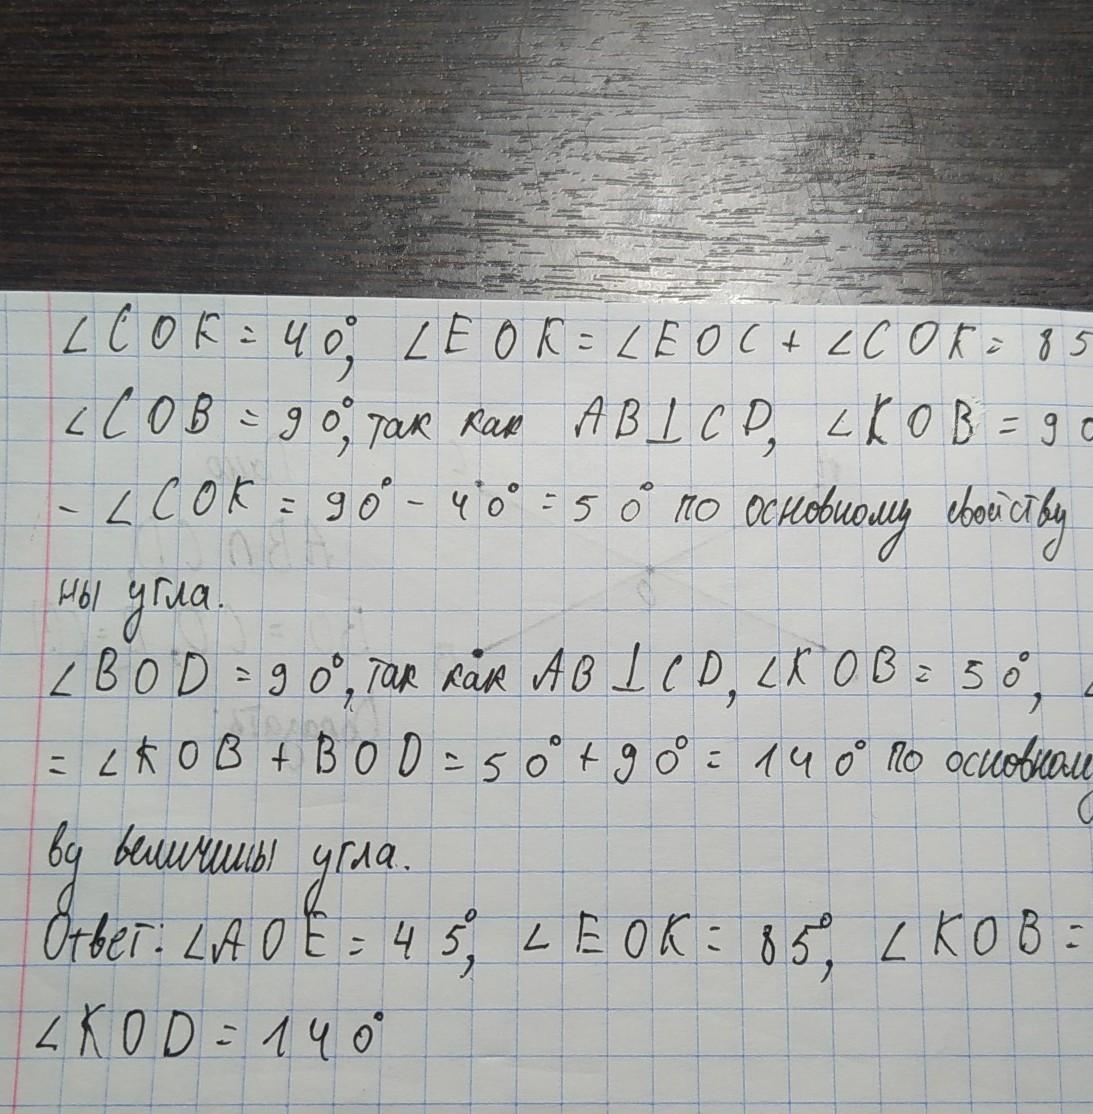 ∠COK = 40°, ∠EOK = ∠EOC + ∠COK = 85
∠COB = 90°, так как AB⊥CD, ∠KOB = 90
- ∠COK = 90° - 40° = 50° по основному свойству
ны угла.
∠BOD = 90°, так как AB⊥CD, ∠KOB = 50°, ∠
= ∠KOB + BOD = 50° + 90° = 140° по основному
ву величины угла.
Ответ: ∠AOE = 45°, ∠EOK = 85°, ∠KOB =
∠KOD = 140°